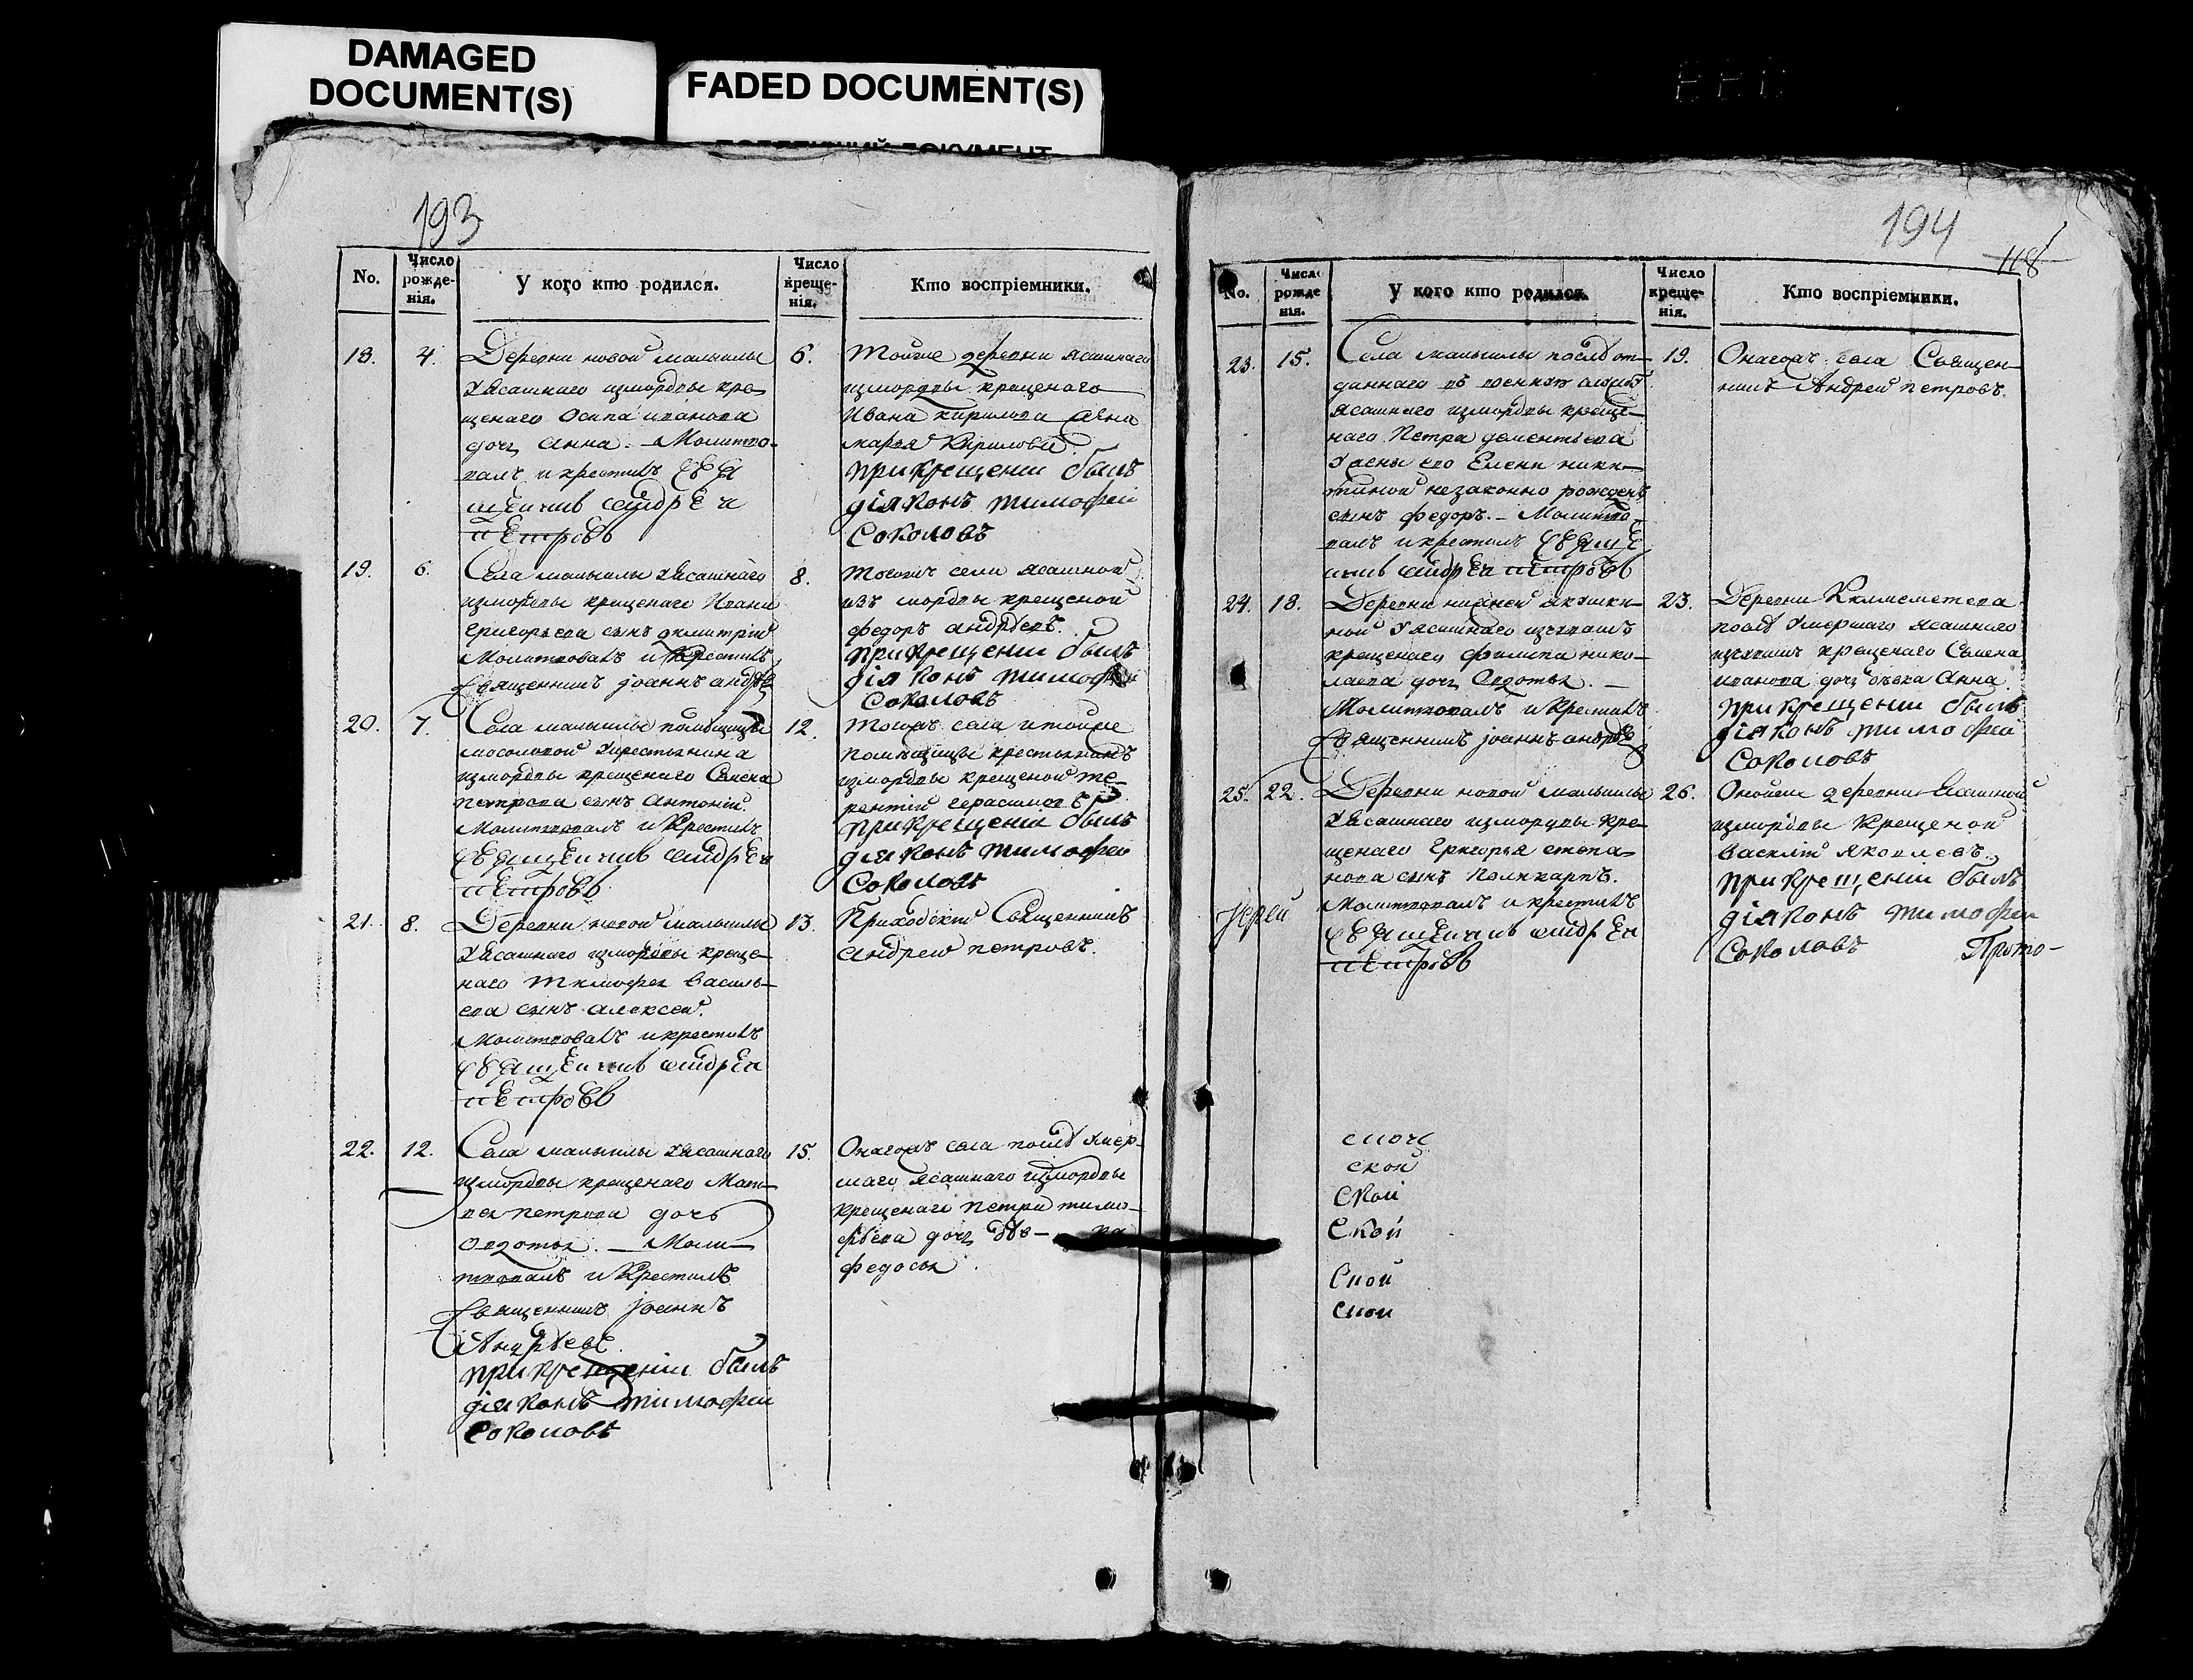 DAMAGED
DOCUMENT(S)
FADED DOCUMENT(S)
193
No.
Число рожденія.
У кого кто родился.
Число крещенія.
Кто воспріемники.
18. 4. Деревни новой малыклы
уясашнаго измордвы кре
щенаго Осипа иванова
дочь Анна. — Молитво
валъ и крестилъ свя
щенникъ андрей
петровъ
6. Тойже деревни ясашнаго
измордвы крещенаго
Ивана кирилова жена
марья Кирилова
прикрещении былъ
діяконъ тимофей
Соколовъ
19. 6. Села малыклы уясашнаго
измордвы крещенаго Ивана
григорьева сынъ димитрий
Молитвовалъ и крестилъ
Священникъ іоаннъ андре
8. Тогожъ села ясашной
изъ мордвы крещеной
федоръ андреевъ.
прикрещении былъ
діяконъ тимофей
Соколовъ
20. 7. Села малыклы помѣщицы
мосоловой укрестьянина
измордвы крещенаго Семена
петрова сынъ Антоній
Молитвовалъ и крестилъ
священникъ андрей
петровъ
12. Тогожъ села итойже
помѣщицы крестьянинъ
измордвы крещеной те
рентій герасимовъ
прикрещении былъ
діяконъ тимофей
Соколовъ
21. 8. Деревни новой малыклы
уясашнаго измордвы креще
наго тимофея василь
ева сынъ алексей.
Молитвовалъ и крестилъ
священникъ андрей
петровъ
13. Приходский Священникъ
Андрей петровъ.
22. 12. Села малыклы уясашнаго
измордвы крещенаго Мат
вея петрова дочь
Овдотья. — Моли
твовалъ и крестилъ
Священникъ іоаннъ
Андреевъ.
прикрещении былъ
діяконъ тимофей
Соколовъ
15. Оногожъ села послѣ умер
шаго ясашнаго измордвы
крещенаго петра тимо
феева дочь дѣв— ка
федосья.
194
118
No.
Число рожде нія.
У кого кто родился.
Число крещенія.
Кто воспріемники.
23. 15. Села малыклы послѣ от
даннаго въ военную службу
ясашнаго измордвы креще
наго Петра дементьева
у жены его Елены ники
тиной незаконно рожденъ
сынъ федоръ. — Молитво
валъ и крестилъ Свяще
никъ андрей петровъ
19. Оногожъ села Священ
никъ Андрей петровъ.
24. 18. Деревни нижней якушки
ной уясашнаго изчувашъ
крещенаго филипа нико
лаева дочь Овдотья. —
Молитвовалъ и крестилъ
Священникъ іоаннъ андре
23. Деревни
послѣ умершаго ясашнаго
изчувашъ крещенаго Семена
иванова дочь девка Анна.
прикрещении былъ
діяконъ тимофей
Соколовъ
25. 22. Деревни новой малыклы
уясашнаго измордвы кре
щенаго Григорья степа
нова сынъ Поликарпъ.
Молитвовалъ и крестилъ
священникъ андрей
петровъ
26. Онойже деревни Ясашной
измордвы крещеной
василій яковлевъ.
прикрещении былъ
діяконъ тимофей
Соколовъ
Іерей
Прото-
ской
Ской
Ской
Ской